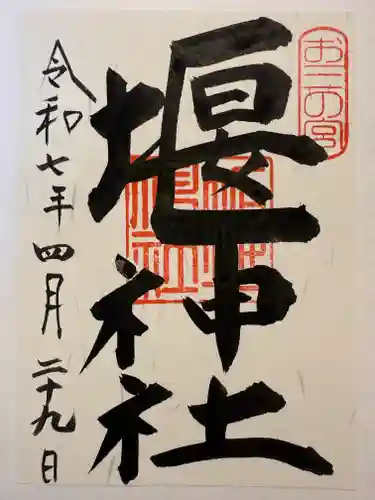 おニの宮
堰神社
令和七年四月二十九日